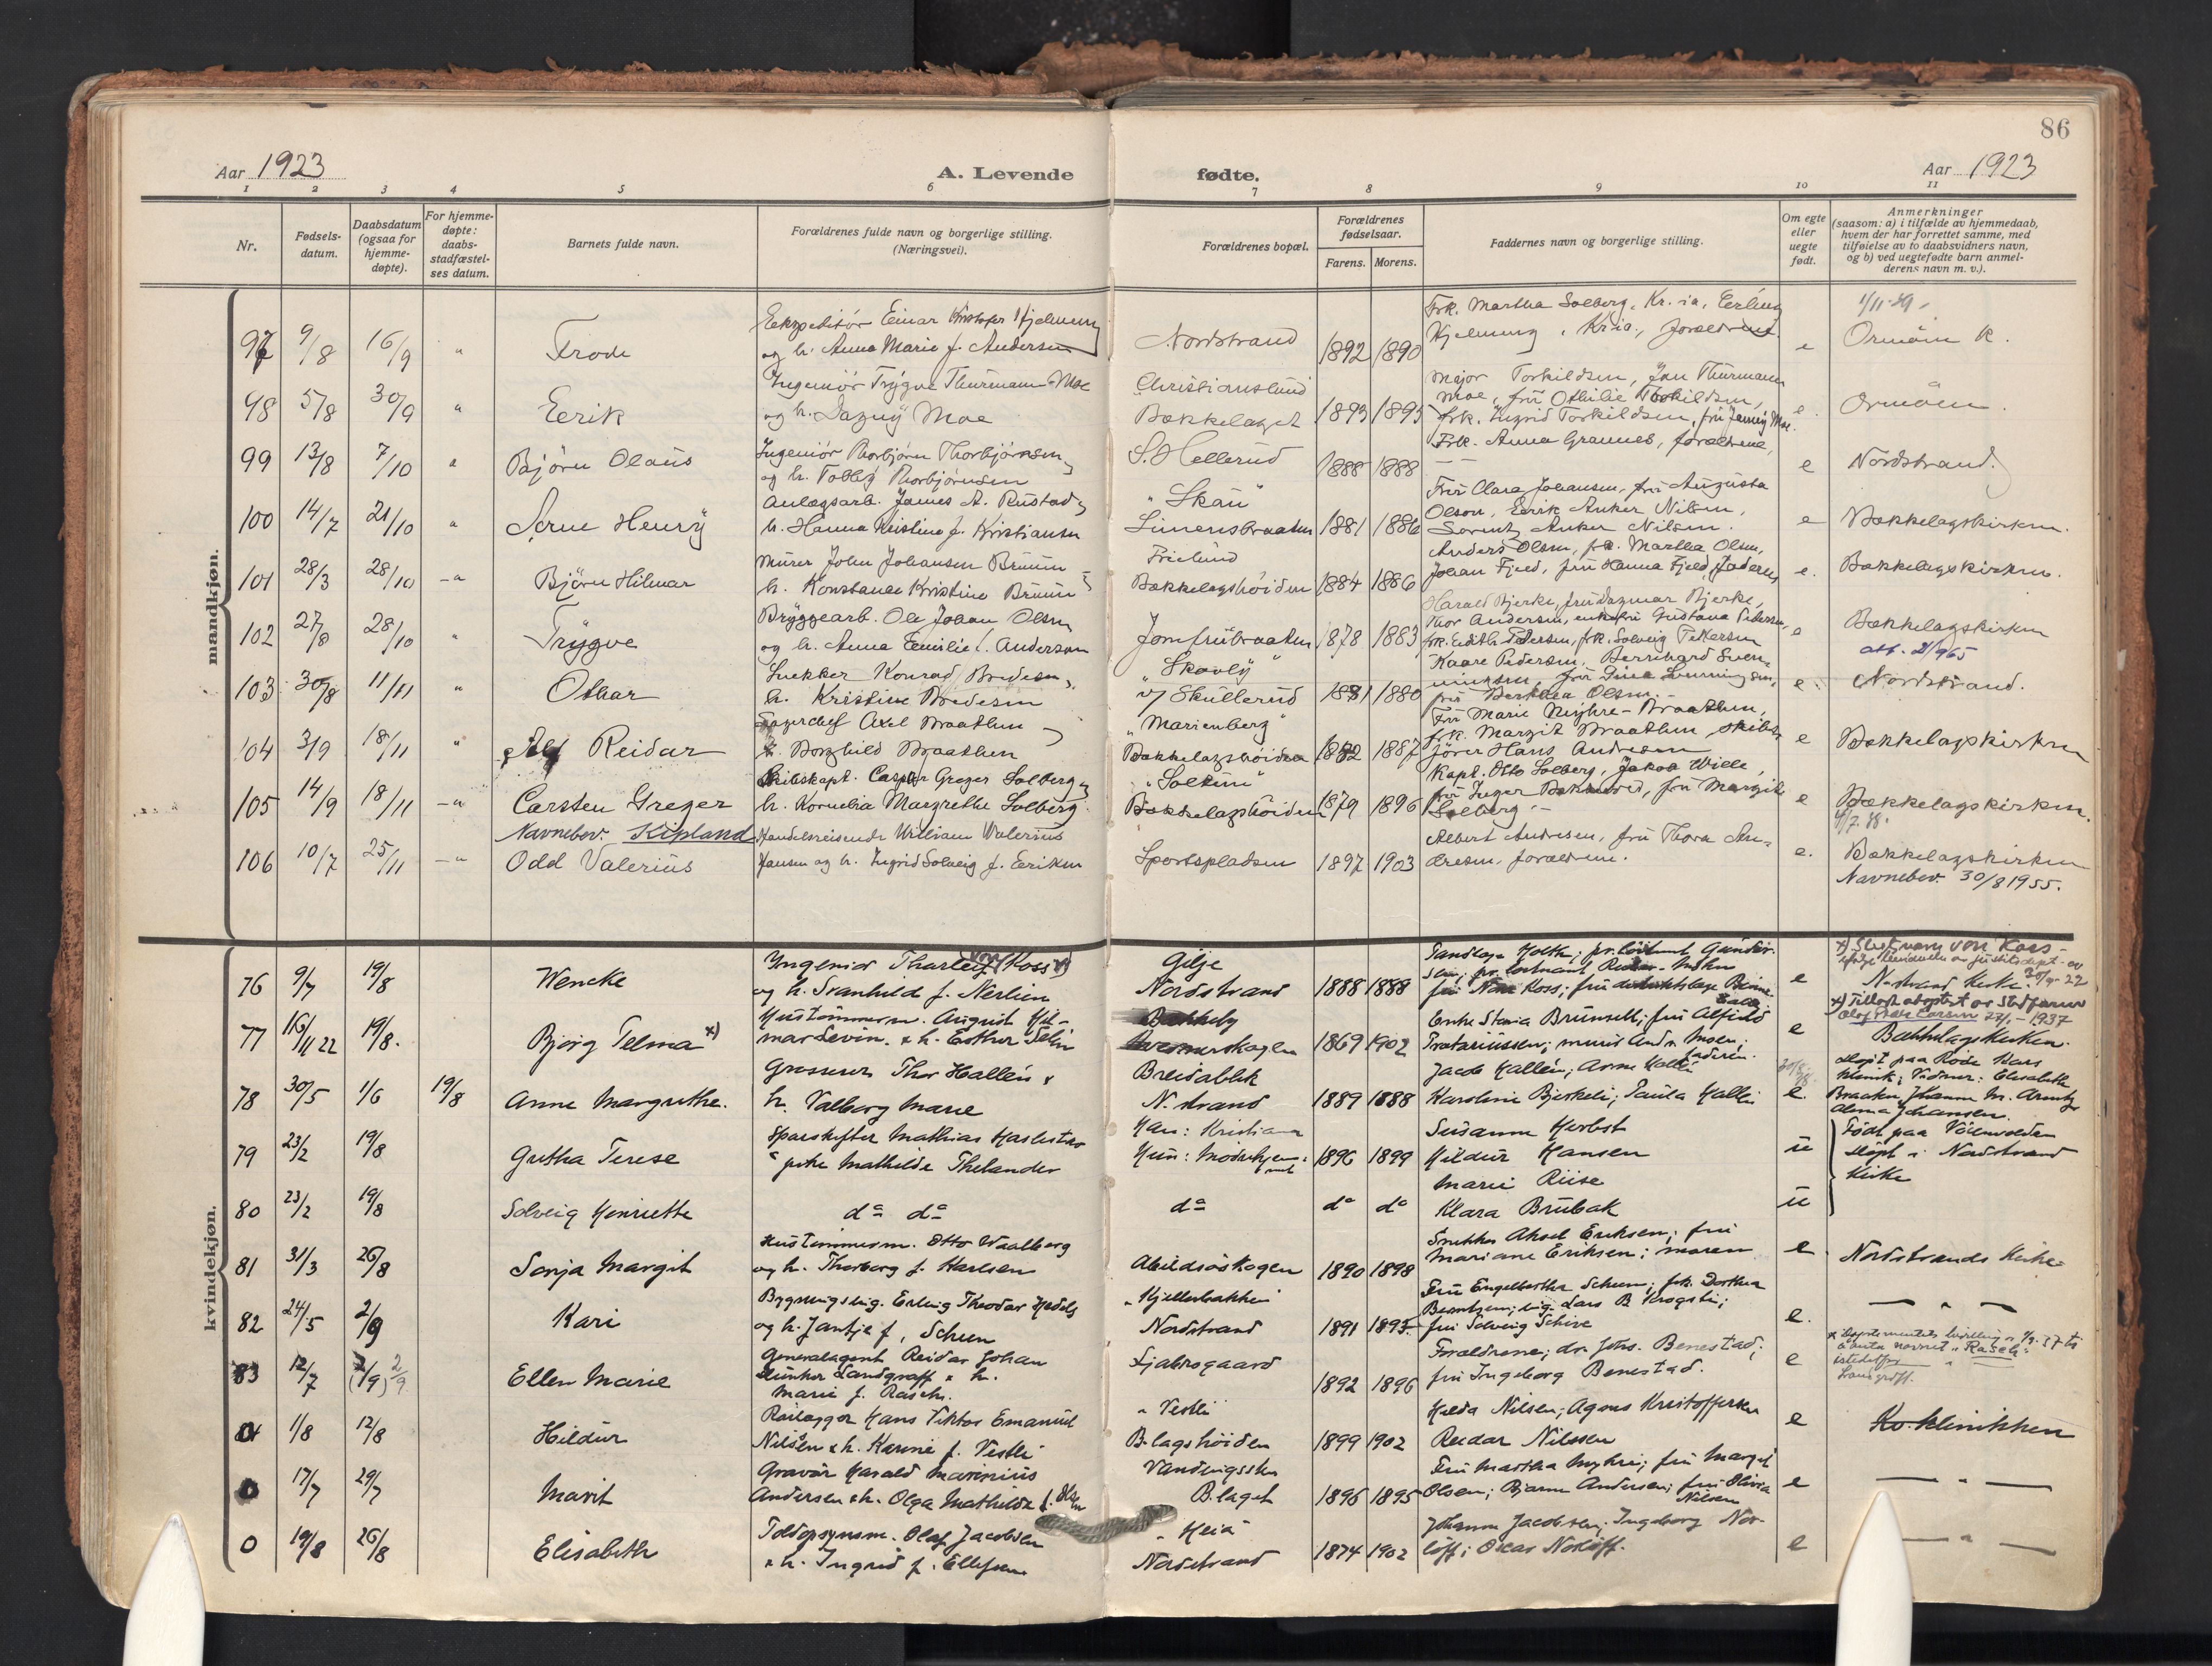 86
Aar 1923
A. Levende
fødte.
Aar 1923
1 2 3 4 5 6 7 8 9 10 11
Nr.
Fødsels-
datum.
Daabsdatum
(ogsaa for
hjemme-
døpte).
For hjemme-
døpte:
daabs-
stadfæstel-
ses datum.
Barnets fulde navn.
Forældrenes fulde navn og borgerlige stilling.
(Næringsvei).
Forældrenes bopæl.
Forældrenes
fødselsaar.
Farens. Morens.
Faddernes navn og borgerlige stilling.
Om egte
eller
uegte
født.
Anmerkninger
(saasom: a) i tilfælde av hjemmedaab,
hvem der har forrettet samme, med
tilføielse av to daabsvidners navn,
og b) ved uegtefødte barn anmel-
derens navn m. v.).
mandkjøn.
97 9/8 16/9 " Frode
Einar Kristofer Hjelmeng
og h. Anna Marie f. Andersen
Nordstrand 1892 1890
Frk. Martha Solberg, Kr.ia, Erling
Hjelmeng, Kr.ia, forældrene
e Ormøen K.
98 5/8 30/9 " Eerik
Ingeniør Trygve Thurmann-Moe
og h. Dagny Moe
Christianslund
Bækkelaget 1893 1895
Major Torkildsen, Jan Thurmann
Moe, fru Othilie Torkildsen,
frk. Ingrid Torkildsen, fru Jenny Moe.
e. Ormøen.
99 13/8 7/10 " Bjørn Olaus
Ingeniør Thorbjørn Thorbjørnsen
og h. Tobby Thorbjørnsen
S. Hellerud 1888 1888
Frk. Anna Grannes, forældrene,
e Nordstrand.
100 14/7 21/10 " Arne Henry
Anlægsarb. James A. Rustad
h. Hanna Kristine f. Kristiansen
"Skau"
Simensbraaten 1881 1886
Fru Clara Johansen, fru Augusta
Olson, Eerik Anker Nilsen,
Lorentz Anker Nilsen.
e Bækkelagskirken.
101 28/3 28/10 " Bjørn Hilmar
Murer John Johansen Bruun
h. Konstanse Kristine Bruun
Frielund
Bækkelagshöiden 1884 1886
Anders Olsen, frk. Martha Olsen,
Johan Fjeld, fru Hanna Fjeld, faderen
e. Bækkelagskirken.
102 27/8 28/10 " Trygve
Bryggearb. Ole Johan Olsen
og h. Anna Emilie f. Anderson
Jomfrubraaten 1878 1883
Harald Bjerke, fru Dagmar Bjerke,
Thor Andersen, enkefru Gustava Pedersen,
frk. Edith Pedersen, frk. Solveig Pettersen
e Bækkelagskirken
103 30/8 11/11 " Othar
Snekker Konrad Bredesen,
h. Kristine Bredesen
"Skovly"
v/ Skullerud 1881 1880
Kaare Pedersen, Bernhard Sven-
ningsen, fru Dina Svenningsen,
fru Berthea Olsen.
e. Nordstrand.
104 3/9 18/11 " Alf Reidar
Lagerchef Axel Braathen
h. Borghild Braathen
"Marienberg"
Bækkelagshöiden 1882 1887
Fru Marie Myhre-Braathen,
frk. Margit Braathen, skibs-
fører Hans Andresen
e Bækkelagskirken
105 14/9 18/11 " Carsten Greger
Skibskapt. Casper Greger Solberg
h. Kornelia Margrethe Solberg
"Soltun"
Bækkelagshöiden 1879 1896
Kapt. Otto Solberg, Jakob Wiele,
fru Margit
Solberg.
e Bækkelagskirken.
Navnebev. Kipland
106 10/7 25/11 " Odd Valerius
Handelsreisende William Valerius
Hansen og h. Ingrid Solveig f. Eeriksen
Sportspladsen 1897 1903
Albert Andresen, fru Thora An-
dresen, forældrene.
e. Bækkelagskirken
Navnebev. 30/8 1955.
kvindekjøn.
76 9/7 19/8 Wencke
Ingeniør Tharleif von Koss x)
og h. Svanhild f. Nerlien
Gilje
Nordstrand 1888 1888
e Nordstrand Kirke.
77 16/11 22 19/8. Bjørg Telma x)
Hustømmerm. August Hil-
mar Levin & h. Esther Selin
Bækkeby
1869 1902
Enke Stina Brunsell; fru Alfild
e Bækkelagskirken.
78 30/5 1/6 19/8 Anne Margrethe.
Grosserer Thor Hallén &
h. Valborg Marie
Breidablik
N.strand 1889 1888
Jacob Hallén; Anne Hallén
Karoline Bjerkeli; Paula Hallén
e. døpt paa Røde Kors
klinik; Vidner: Elisabeth
Alma Johansen.
79 23/2 19/8 Gretha Terese
Sparskifter Mathias Haslestad
" pike Mathilde Thelander
Han: Kristiania
Hun: Mødrehjem-
met 1896 1899
Susanne Herbst
Hildur Hansen
u Født paa Vøienvolden
døpt i Nordstrand
Kirke
80 23/2 19/8 Solveig Henriette
do do
do do do
Marie Riise
Klara Brubak
u
81 31/3 26/8 Sonja Margit
Hustømmerm. Otto Waalberg
og h. Thorborg f. Karlsen
Abildsøskogen 1890 1898
Snekker Aksel Eriksen; fru
Mariane Eriksen; moren
e. Nordstrands Kirke
82 24/5 2/9 Kari
Bygningsing. Erling Theodor Hedels
og h. Jantje f. Scheen
"Hjellebakken"
Nordstrand 1891 1895.
Fru Engelberthe Scheen; frk. Dorthea
Berntzen; ing. Lars B. Krogstie;
fru Solveig Schive
e. — " —
83 12/7 2/9 Ellen Marie
Generalagent Reidar Johan
Dunker Landgraff & h.
Marie f. Rasch.
Ljabrogaard
1892 1896
Forældrene; dr. Johs. Benestad;
fru Ingeborg Benestad.
e "Rasch"
istedetfor
Landgraff.
1/8 12/8 Hildur
Rørlægger Hans Viktor Emanuel
Nilsen & h. Karine f. Vestli
"Vestli"
B.lagshöiden 1899 1902
Hilda Nilsen; Agnes Kristoffersen
Reidar Nilssen
e Kv. klinikken
0 17/7 29/7 Marit
Gravør Harald Marinius
Andersen & h. Olga Mathilde f. Olsen
B.laget 1896 1895
Fru Martha Myhre; fru Margit
Olsen; Bjarne Andersen; fru Olivia
Nilsen
e — " —
0 19/8 26/8 Elisabeth
Toldopsynsm. Olaf Jacobsen
& h. Ingrid f. Ellefsen
"Heia"
Nordstrand 1874 1902
Johanne Jacobsen; Ingeborg Nor-
löff; Oscar Norlöff.
e — " —